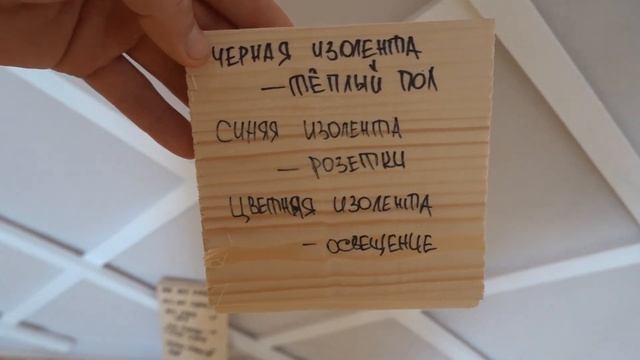 ЧЕРНАЯ ИЗОЛЕНТА
— ТЁПЛЫЙ ПОЛ
СИНЯЯ ИЗОЛЕНТА
— РОЗЕТКИ
ЦВЕТНАЯ ИЗОЛЕНТА
— ОСВЕЩЕНИЕ